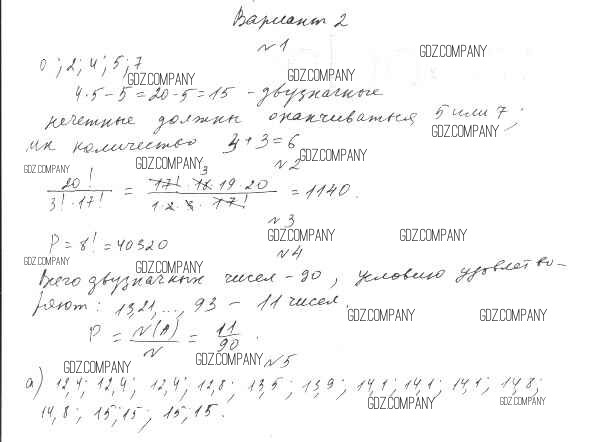 Вариант 2
№1
GDZ.COMPANY
0; 2; 4; 5; 7
GDZ.COMPANY
GDZ.COMPANY
4·5-5=20-5=15 - двузначные
нечетные должны оканчиваться 5 или 7;
GDZ.COMPANY
их количество 3+3=6
GDZ.COMPANY
GDZ.COMPANY
GDZ.COMPANY
№2
20! / 3!·17! = 17!·18·19·20 / 1·2·3·17! = 1140.
№3
P = 8! = 40320
GDZ.COMPANY
GDZ.COMPANY
№4
GDZ.COMPANY
GDZ.COMPANY
Всего двузначных чисел - 90, условию удовлетво-
ряют: 13,21,..., 93 - 11 чисел.
GDZ.COMPANY
GDZ.COMPANY
P = N(A)/N = 11/90.
GDZ.COMPANY
GDZ.COMPANY
№5
а) 12,4; 12,4; 12,4; 12,8; 13,5; 13,9; 14,1; 14,1; 14,1; 14,8;
14,8; 15; 15; 15; 15.
GDZ.COMPANY
GDZ.COMPANY